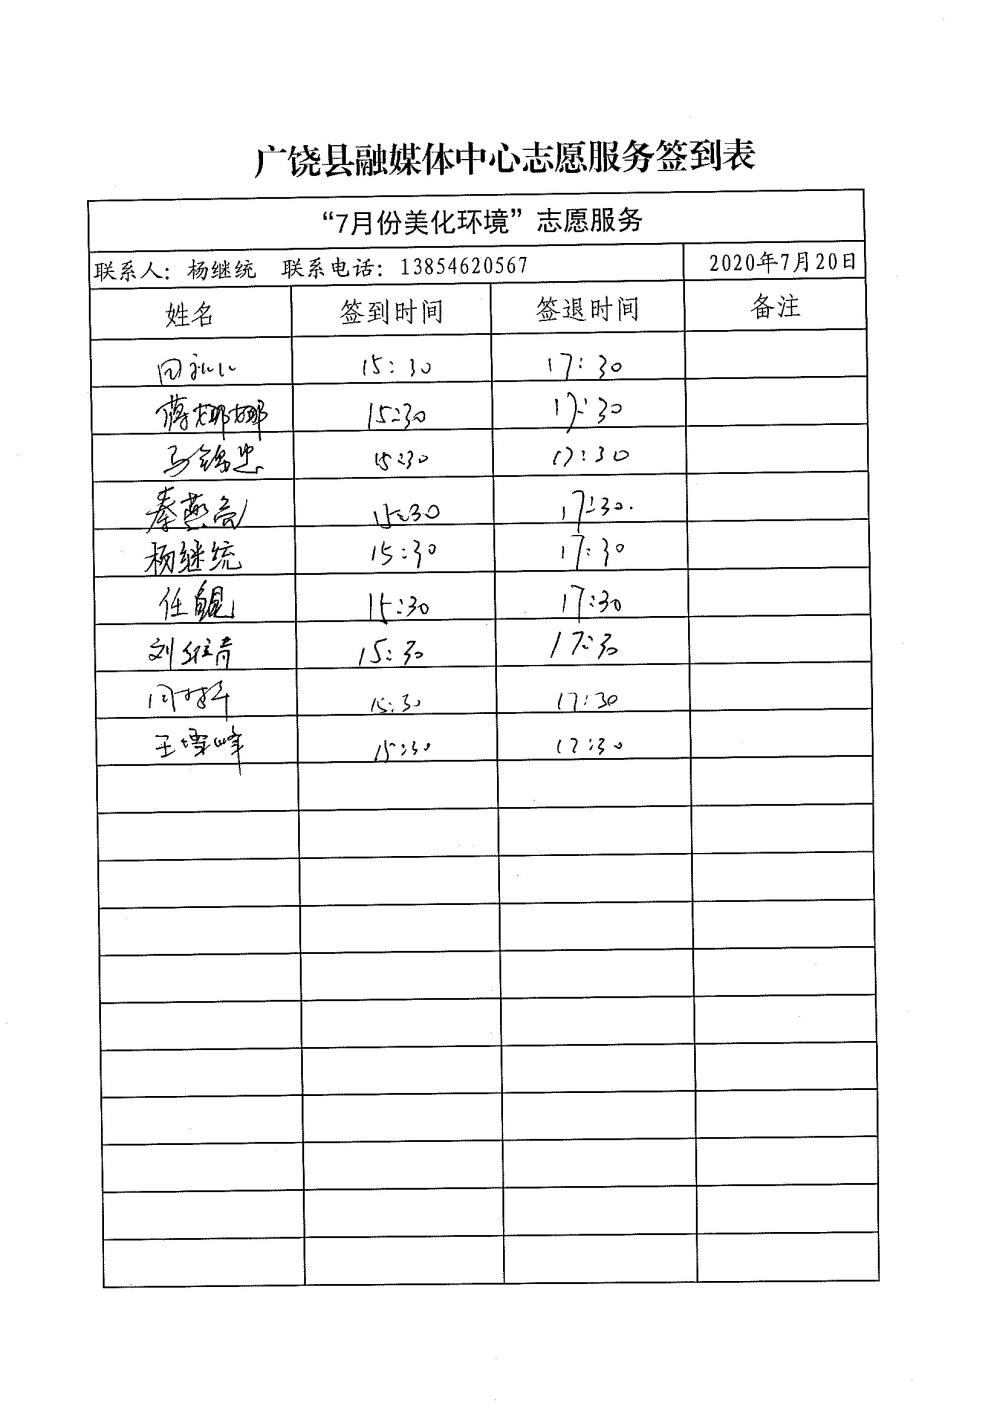 广饶县融媒体中心志愿服务签到表
“7月份美化环境”志愿服务
联系人：杨继统 联系电话：13854620567 2020年7月20日
姓名 签到时间 签退时间 备注
15:30 17:30
蒋娜娜 15:30 17:30
马锦忠 15:30 17:30
秦燕亮 15:30 17:30.
杨继统 15:30 17:30
任鲲 15:30 17:30
刘维青 15:30 17:30
15:30 17:30
王雪峰 15:30 17:30